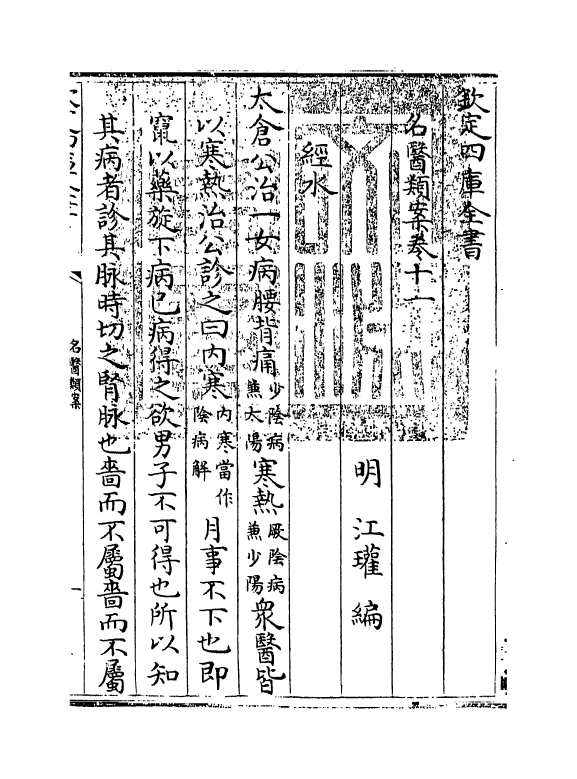 欽定四庫全書
名醫類案卷十一
明 江瓘 編
經水
太倉公治一女病腰背痛少陰病兼太陽寒熱厥陰病兼少陽衆醫皆
以寒熱治公診之曰内寒内寒當作陰病解月事不下也即
竄以藥旋下病已病得之欲男子不可得也所以知
其病者診其脉時切之腎脉也嗇而不屬嗇而不屬
名醫類案
一